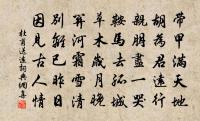 帶甲滿天地
胡為君遠行
親朋盡一哭
鞍馬去孤城
草木歲月晚
關河霜雪清
別離已昨日
因見古人情
杜甫送遠詞典網書